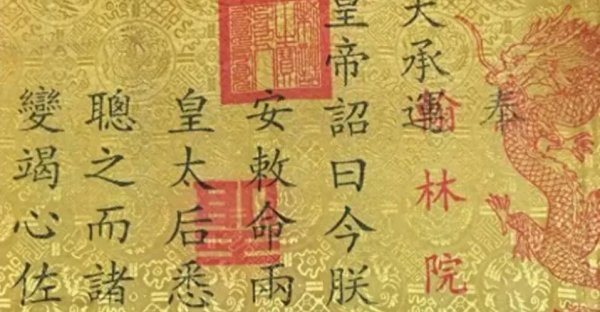 奉
天承運
翰林院
皇帝詔曰今朕
安敕命兩
皇太后悉
聰之而諸
變竭心佐